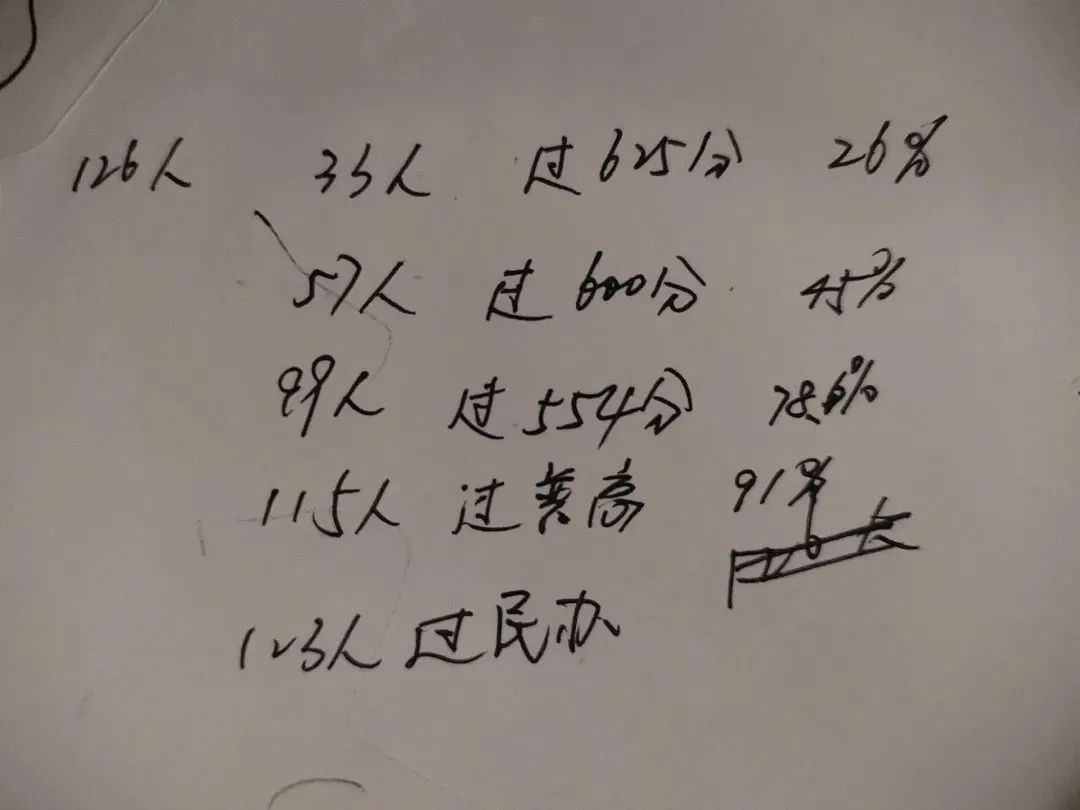 126人 33人 过625分 26%
57人 过600分 45%
99人 过554分 78.6%
115人 过普高 91%
123人 过民办